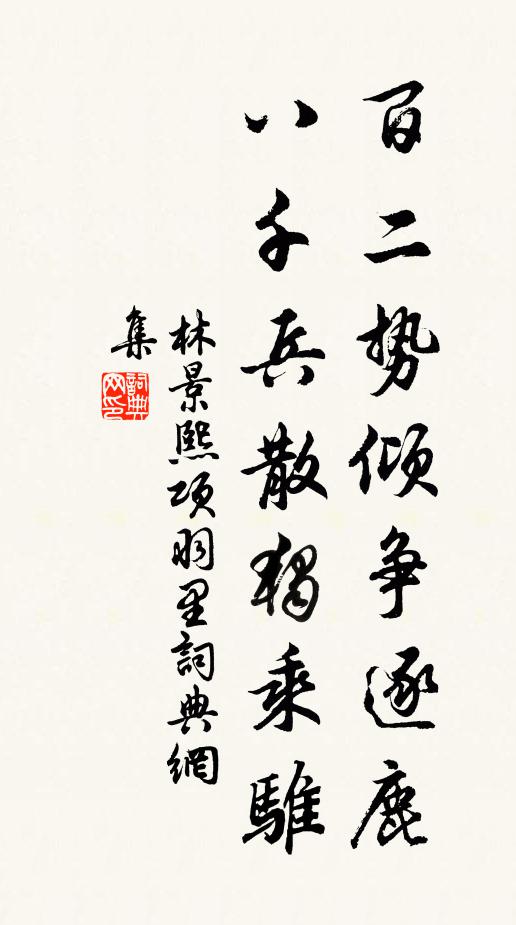 百二势倾争逐鹿
八千兵散独乘騅
林景熙项羽里詞典網
集
詞典网印